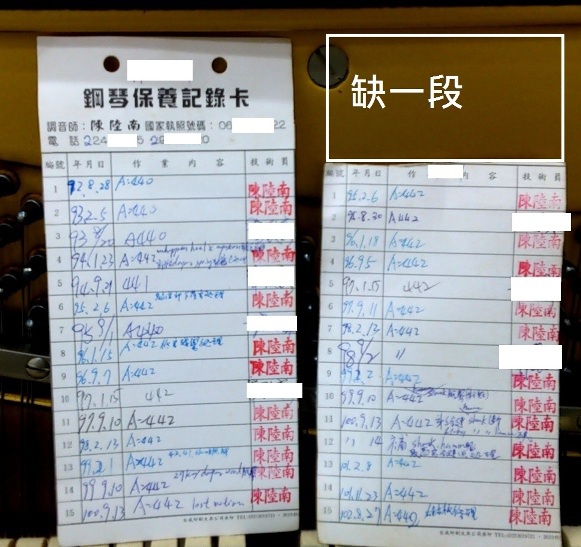 鋼琴保養記錄卡
調音師：陳陸南 國家執照號碼：06 22
電話 224 5 29 0
編號 年月日 作業內容 技術員
1 92.8.28 A=440 陳陸南
2 93.2.5 A=440 陳陸南
3 93 8/20 A440
4 94.1.23 A=442 陳陸南
5 94.9.21 441
6 95.2.6 A=442 陳陸南
7 95 9/1 A440
8 96.1.15 A=442 陳陸南
9 96.9.7 A=442 陳陸南
10 97.1.15 442
11 97.9.10 A=442 陳陸南
12 98.2.13 A=442 陳陸南
13 99.2.1 A=442 陳陸南
14 99.9.10 A=442 陳陸南
15 100.9.13 A=442 lost motion 陳陸南
缺一段
編號 年月日 作 內容 技術員
1 95.2.6 A=442 陳陸南
2 95.8.30 A442
3 96.1.18 A=442 陳陸南
4 96.9.5 A=442 陳陸南
5 97.1.15 442
6 97.9.11 A=442 陳陸南
7 98.2.13 A=442 陳陸南
8 98 9/2 〃
9 99.2.2 A=442 陳陸南
10 99.9.10 A=442 陳陸南
11 100.9.13 A=442 陳陸南
12 〃 14 陳陸南
13 101.2.8 A=442 陳陸南
14 101.11.23 A=442 陳陸南
15 102.8.27 A=442 陳陸南